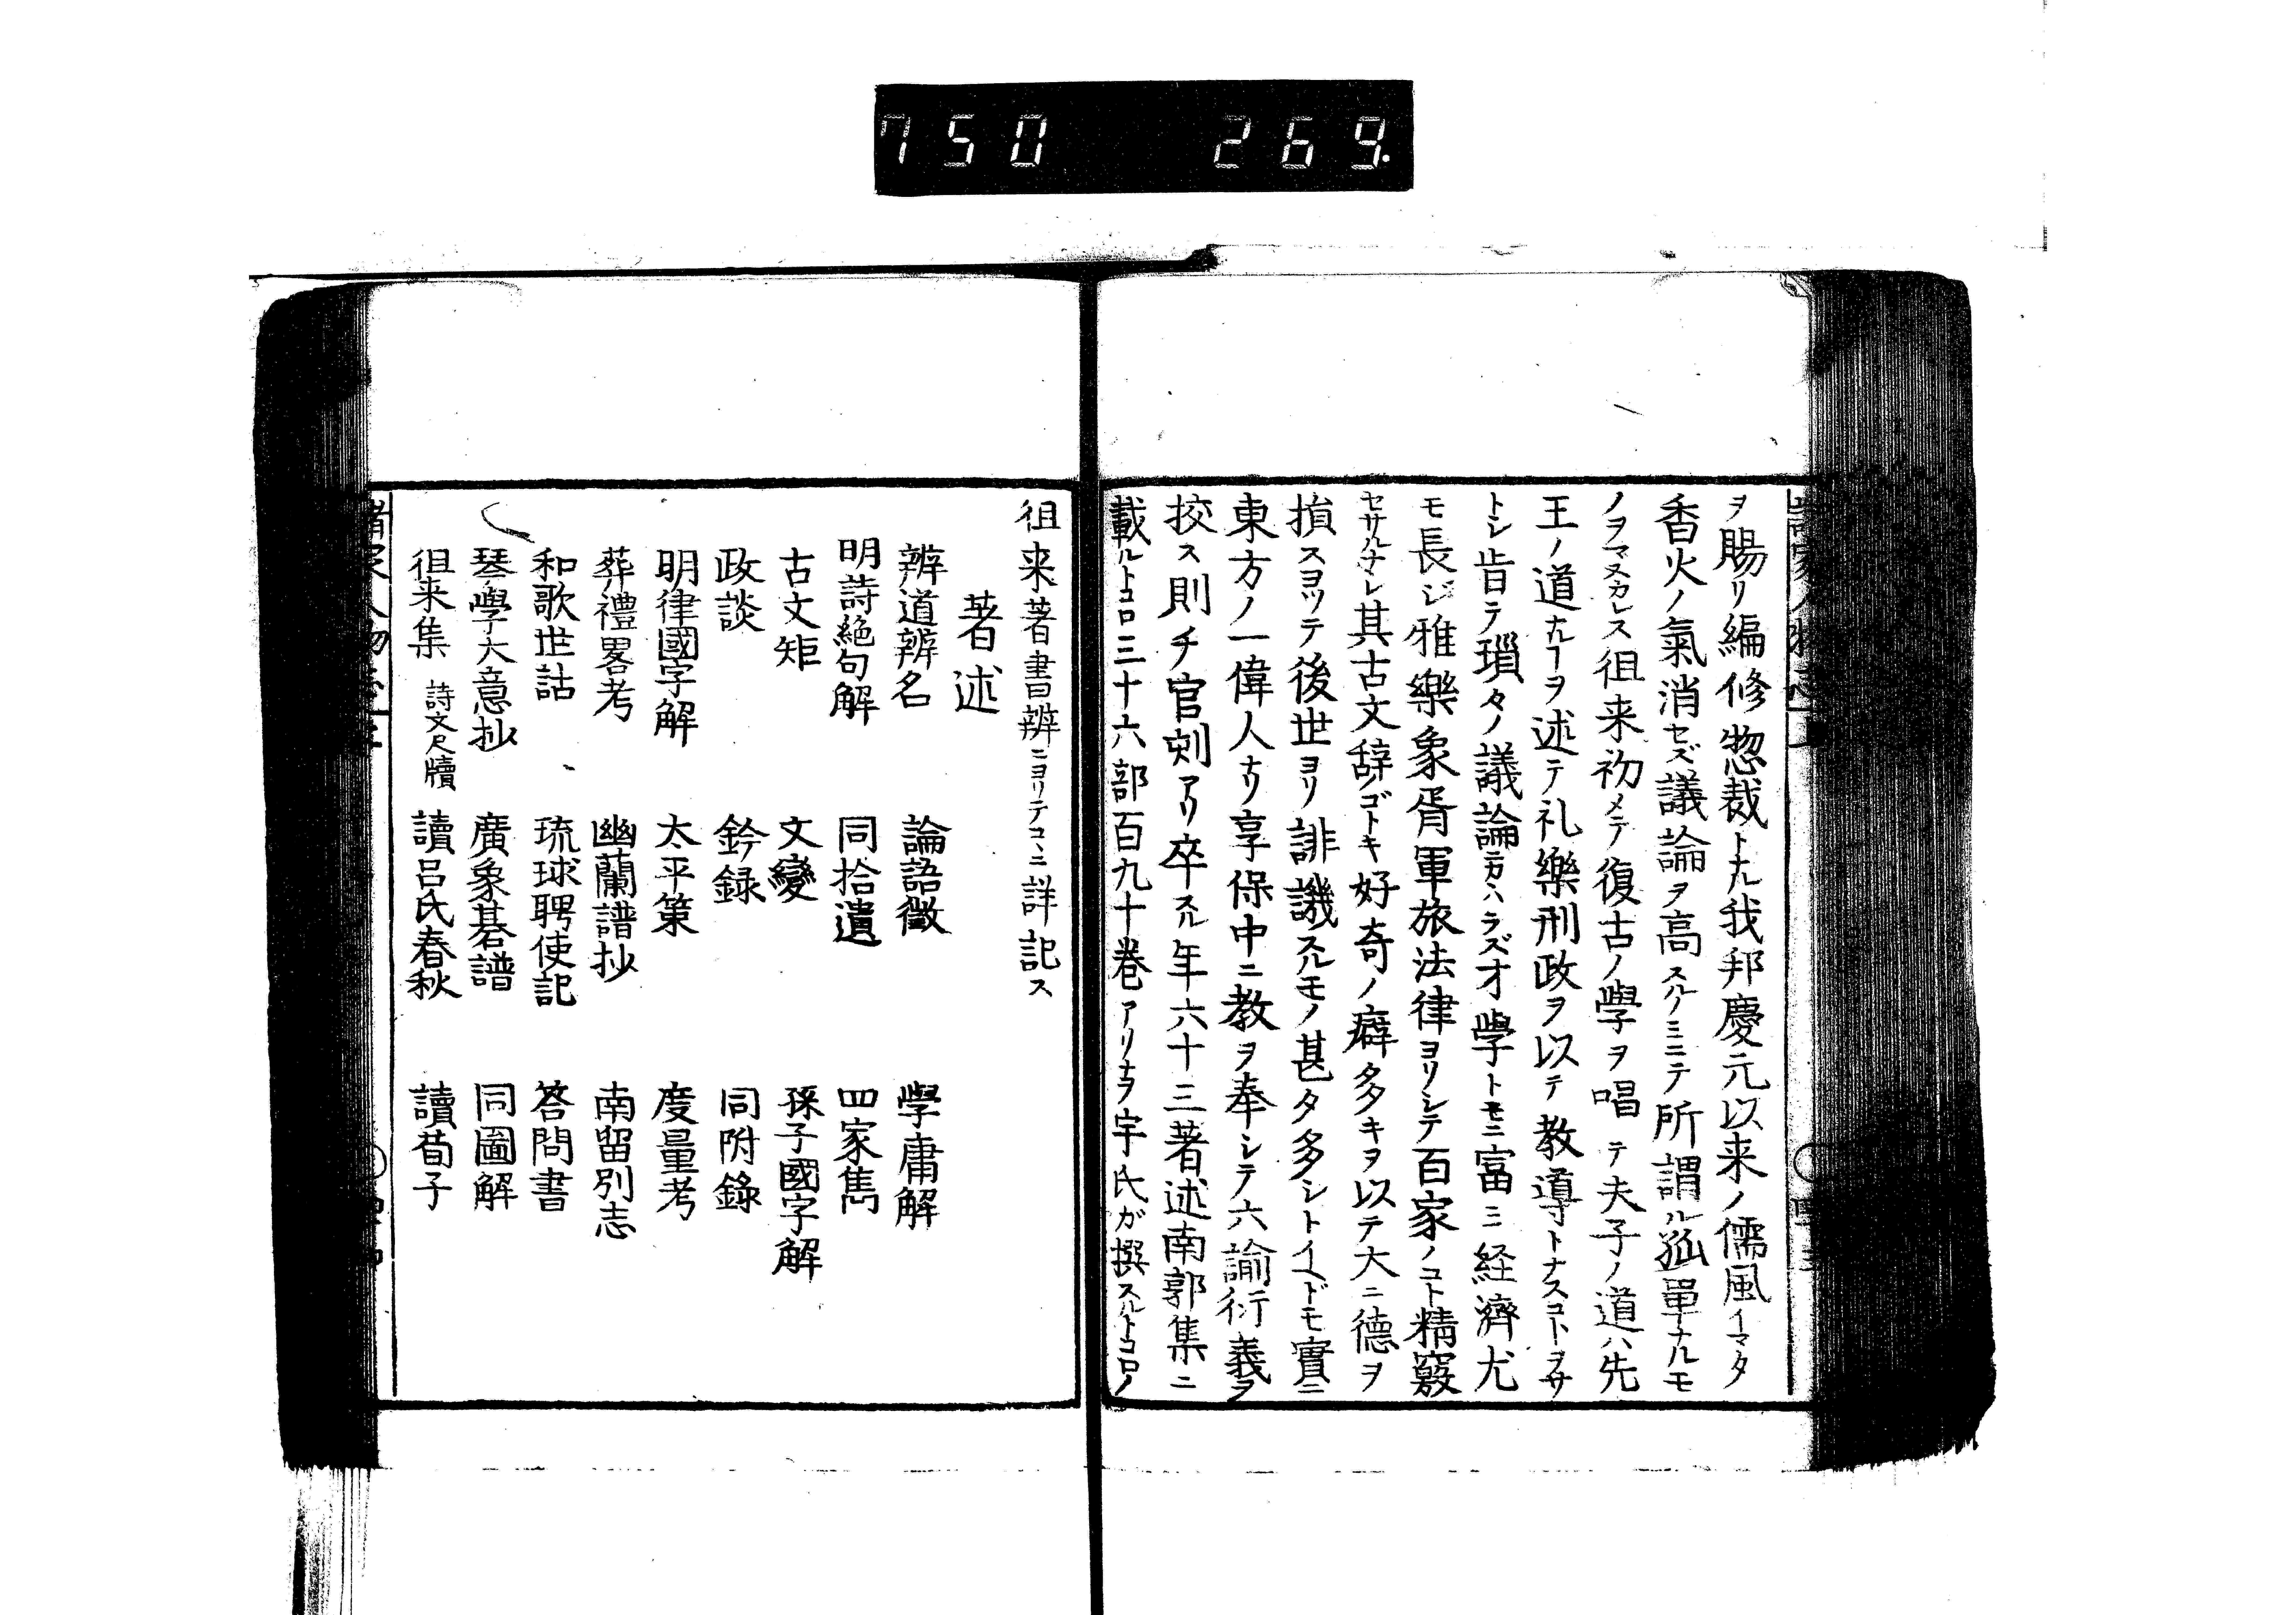 750 269.
ヲ賜リ編修惣裁トナル我邦慶元以来ノ儒風イマタ
香火ノ氣消セズ議論ヲ高スルノミニテ所謂ル孤單ナルモ
ノヲマヌカレス徂来初メテ復古ノ學ヲ唱テ夫子ノ道ハ先
王ノ道ナルヿヲ述テ礼樂刑政ヲ以テ教導トナスコト
トシ皆テ瑣タノ議論ニカヽハラズオ學トモニ富ミ経濟尤
モ長ジ雅樂象胥軍旅法律ヨリシテ百家ノコト精竅
セサルナシ其古文辞ノゴトキ好奇ノ癖多キヲ以テ大ニ德ヲ
損スヨツテ後世ヨリ誹譏スルモノ甚タ多シトイヘドモ實ニ
東方ノ一偉人ナリ享保中ニ教ヲ奉シテ六諭衍義ヲ
挍ス則チ官刻アリ卒スル年六十三著述南郭集ニ
載ルトコロ三十六部百九十巻アリナヲ宇氏ガ撰スルトコロノ
徂来著書辨ニヨリテコヽニ詳記ス
著述
辨道辨名 論語徴 學庸解
明詩絶句解 同拾遺 四家雋
古文矩 文變 孫子國字解
政談 鈐録 同附錄
明律國字解 太平策 度量考
葬禮畧考 幽蘭譜抄 南留別志
和歌世詁 琉球聘使記 答問書
琴學大意抄 廣象棊譜 同圖解
徂来集 詩文尺牘 讀呂氏春秋 讀荀子